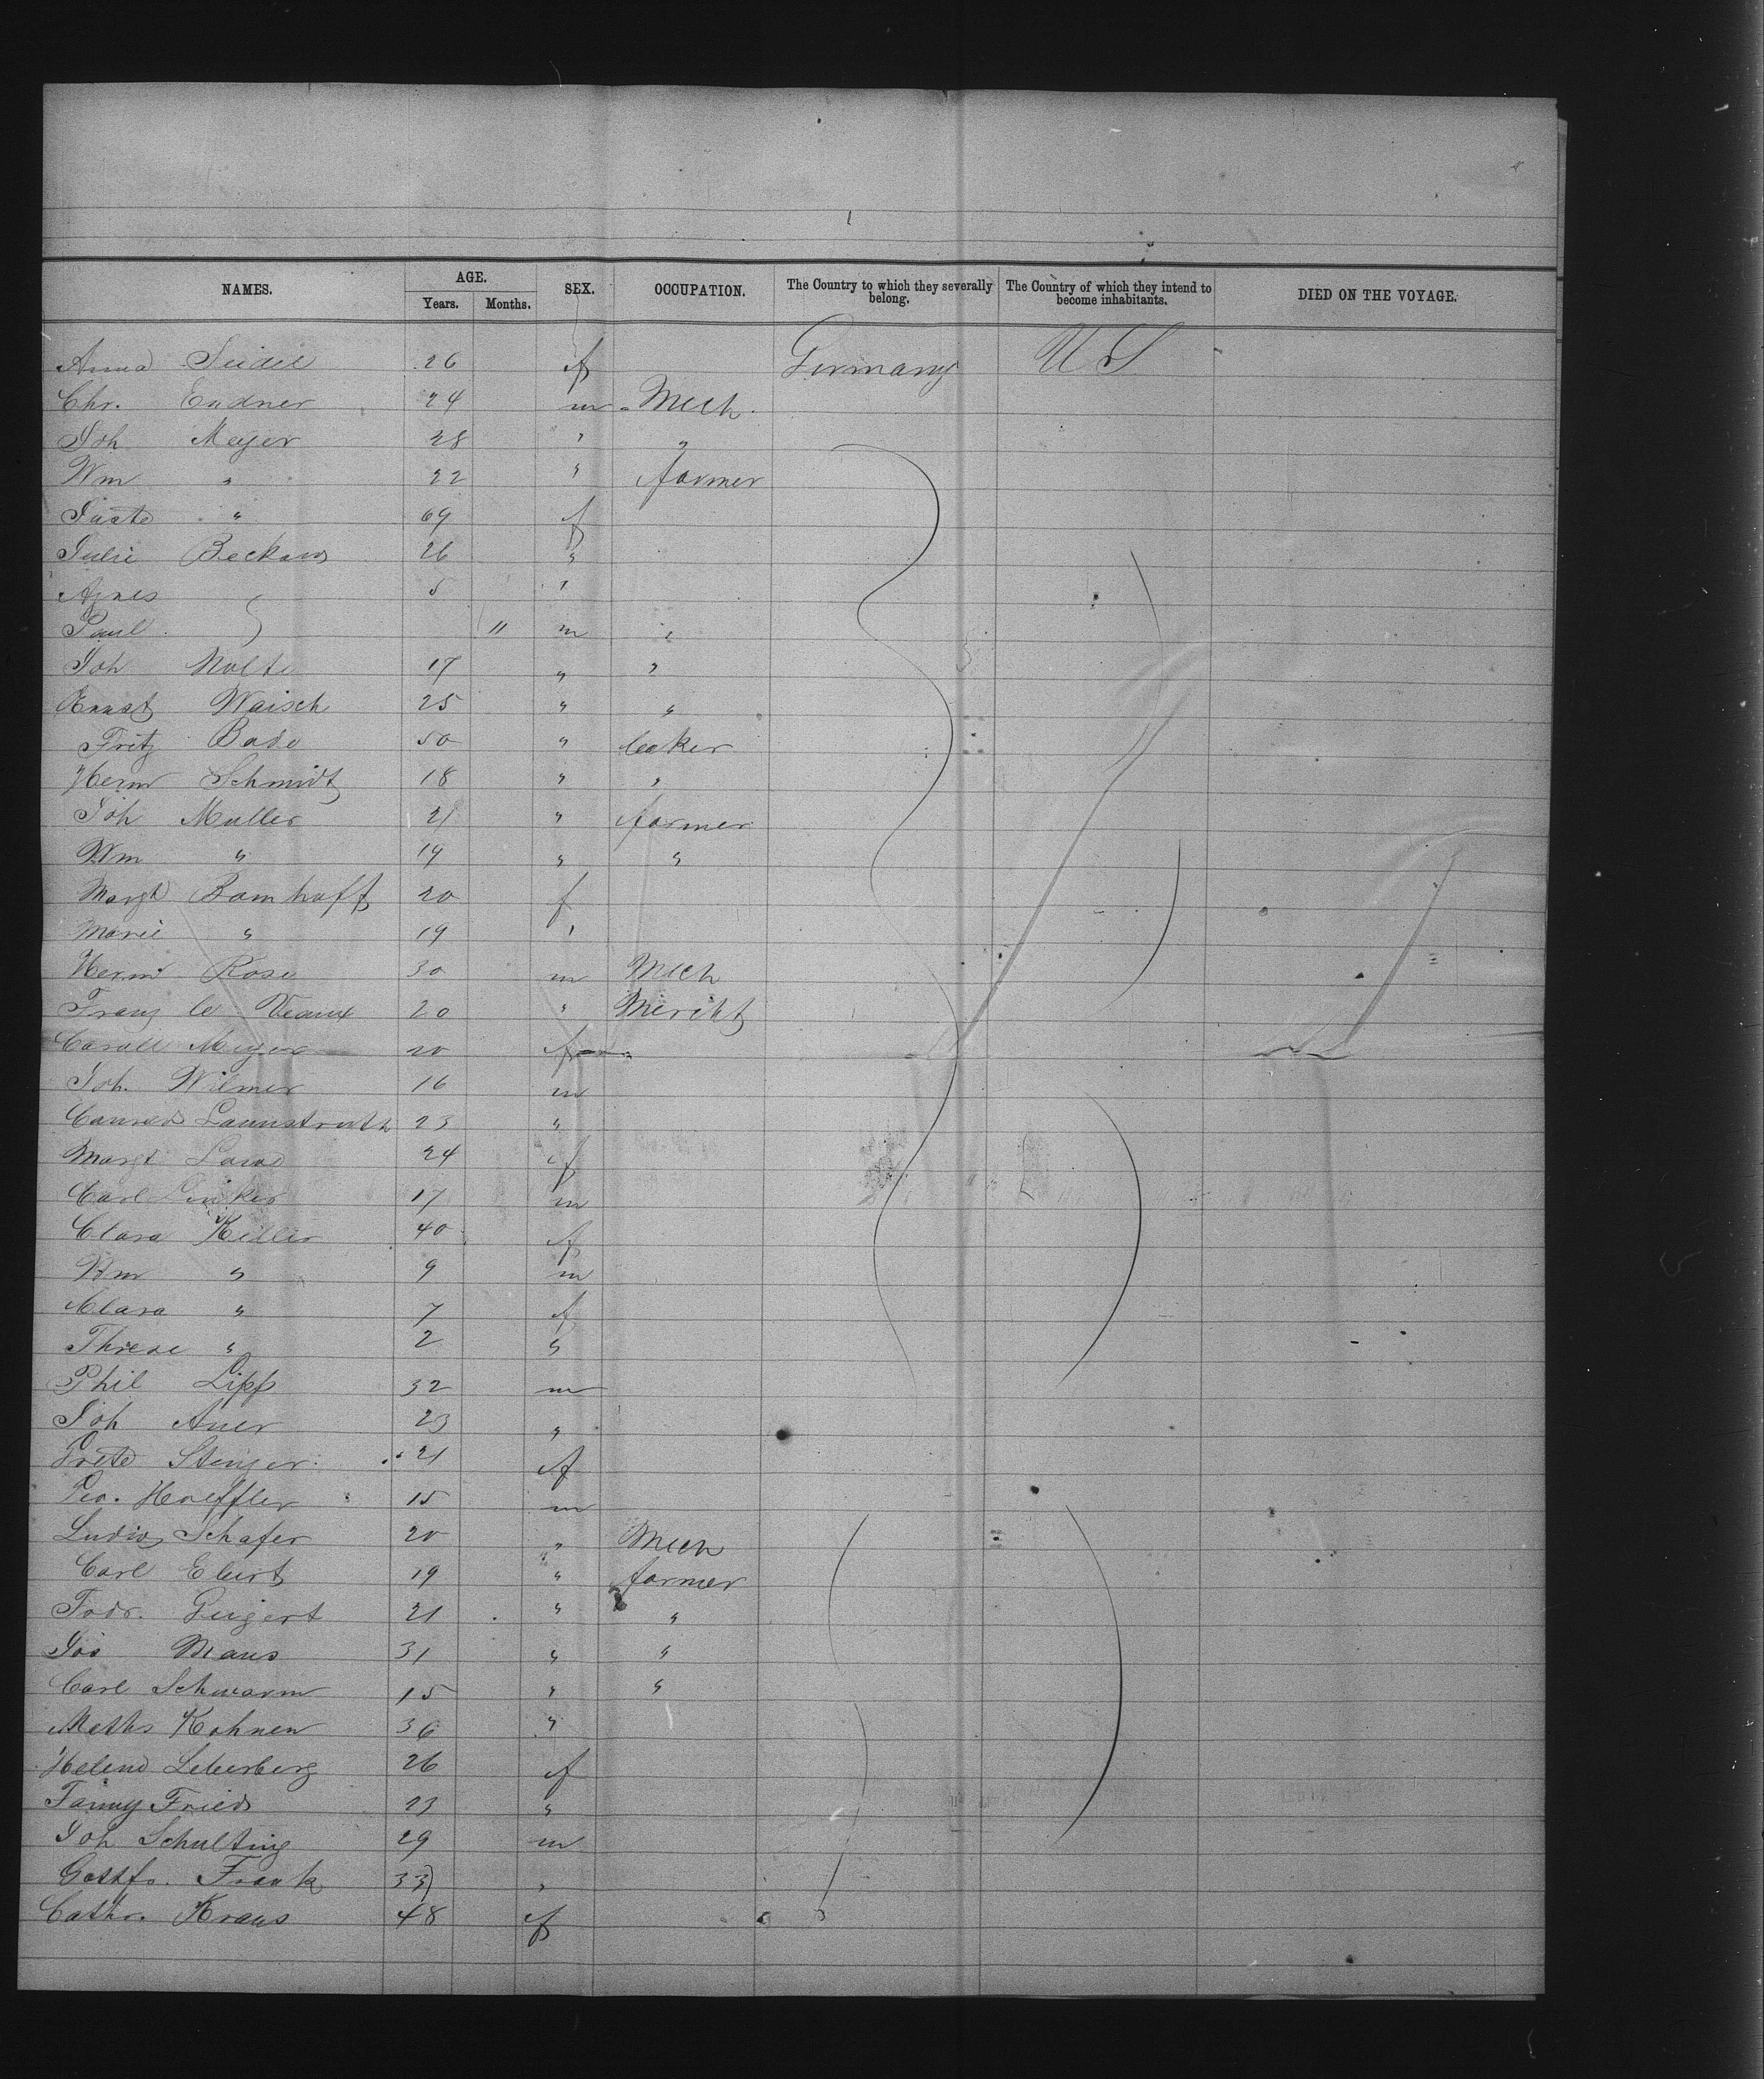 NAMES. AGE. SEX. OCCUPATION. The Country to which they severally belong. The Country of which they intend to become inhabitants. DIED ON THE VOYAGE.
Years. Months.
Anna 26 f Germany U S
Chr. Endner 24 m Mech.
Joh Meyer 28 " "
Wm " 22 " farmer
" 69 f
Julie 26 "
Agnes 5 "
Paul 11 m "
Joh Nolte 17 " "
Ernst Waisch 25 " "
Fritz Bode 50 " baker
Herm Schmidt 18 " "
Joh Muller 21 " farmer
Wm " 19 " "
Margt Bomhoff 20 f
Marie " 19 "
Herm Rose 30 m Mech
Franz le Veaux 20 " Mercht
Meyer 20 f
Joh. Wilmer 16 m
Conrad 23 "
Margt 24 f
Carl 17 m
Clara Keller 40 f
Wm " 9 m
Clara " 7 f
Threse " 2 "
Phil Lipp 32 m
Joh Auer 23 "
Stenger 21 f
Geo. Hoeffler 15 m
Ludwig Schafer 20 " Mech
Carl Ebert 19 " farmer
Fodr. Geigert 21 " "
Jos Maus 31 " "
Carl Schwarm 15 " "
Maths Kohnen 36 "
Helene Leberberg 26 f
Fanny Fried 23 "
Joh Schulting 29 m
Gottfr. Frank 33 "
Cathr. Kraus 48 f